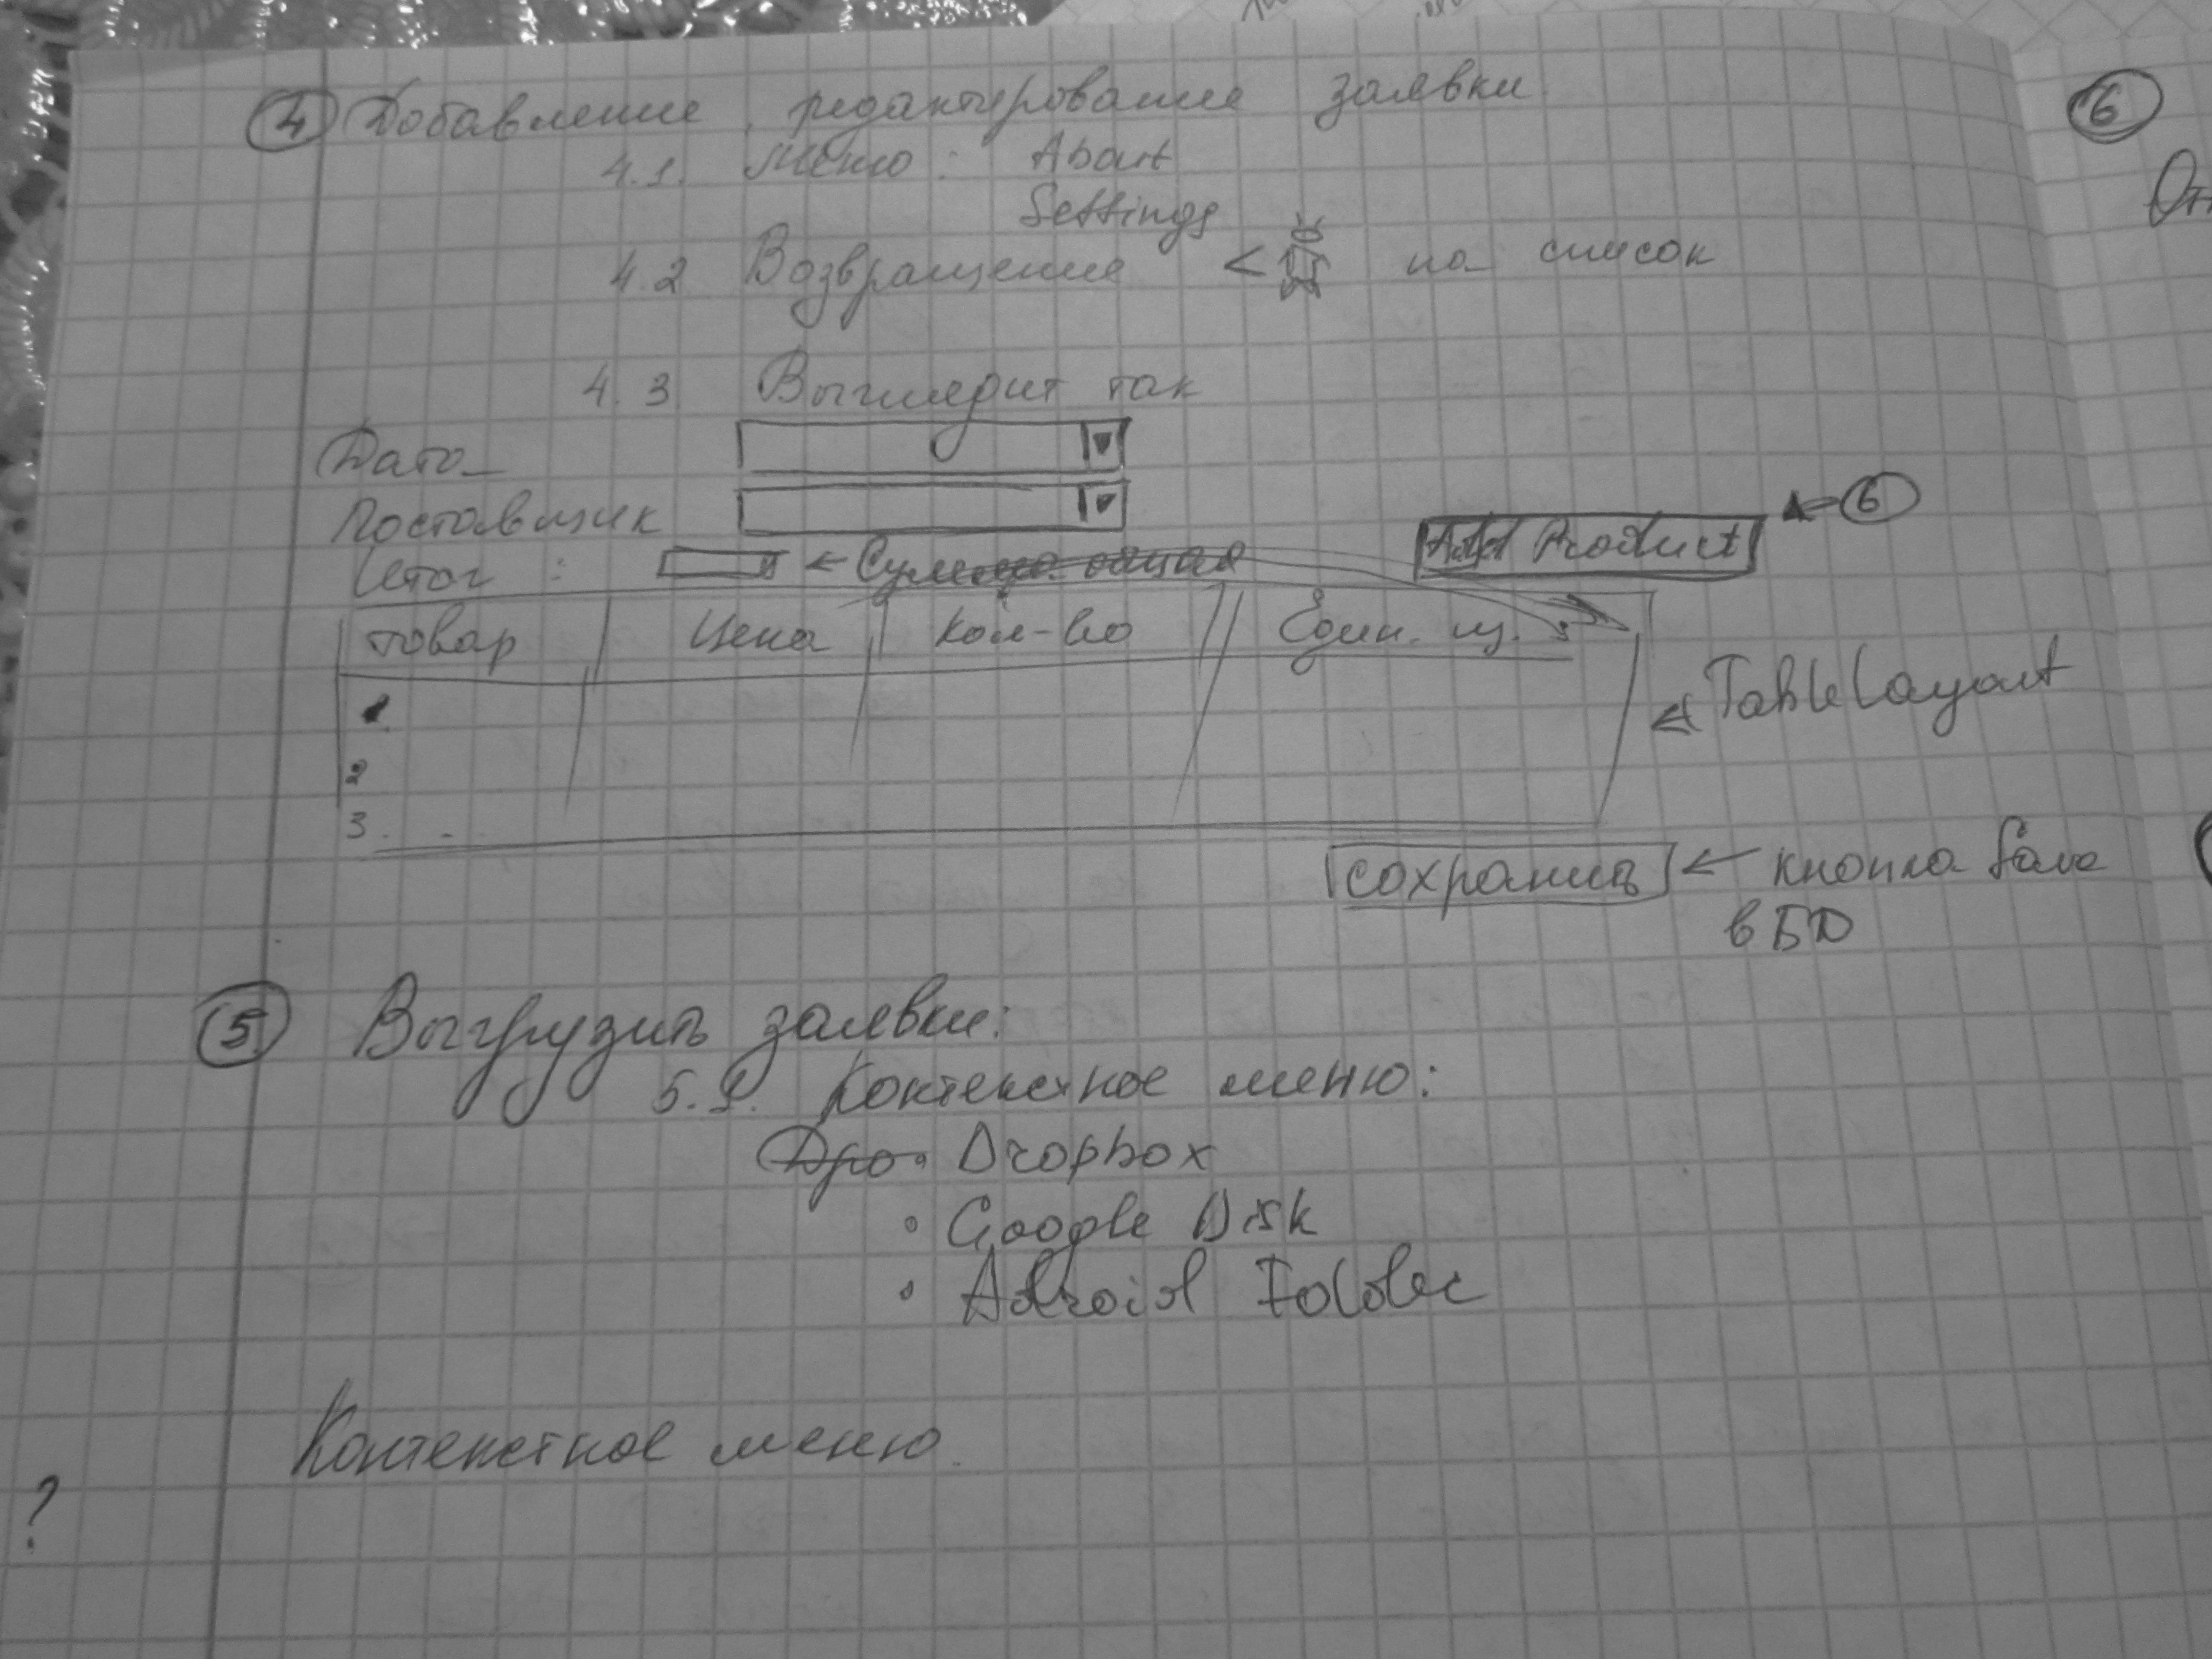 ④ Добавление, редактирование заявки.
4.1. Меню: About
Settings
4.2 Возвращение < на список
4.3. Выглядит так
Дата
Поставщик
Add Product ← ⑥
Итог: ←
товар Цена кол-во Един. из.
1.
2.
3. .
← TableLayout
сохранить ← кнопка Save
в БД
⑤ Выгрузить заявки:
5.1 Контекстное меню:
Dropbox
• Google Disk
• Android Folder
? Контекстное меню.
⑥